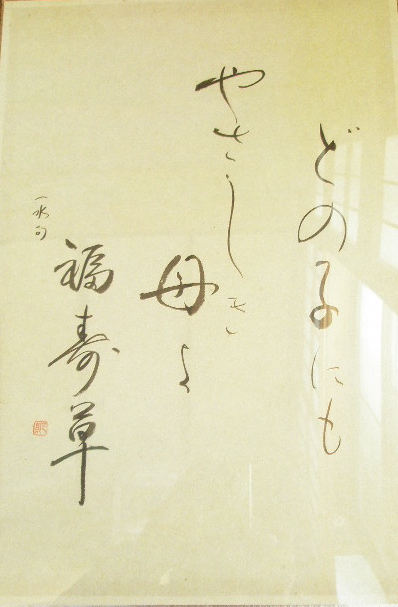 どの子にも
やさしき
母よ
福寿草
一水句